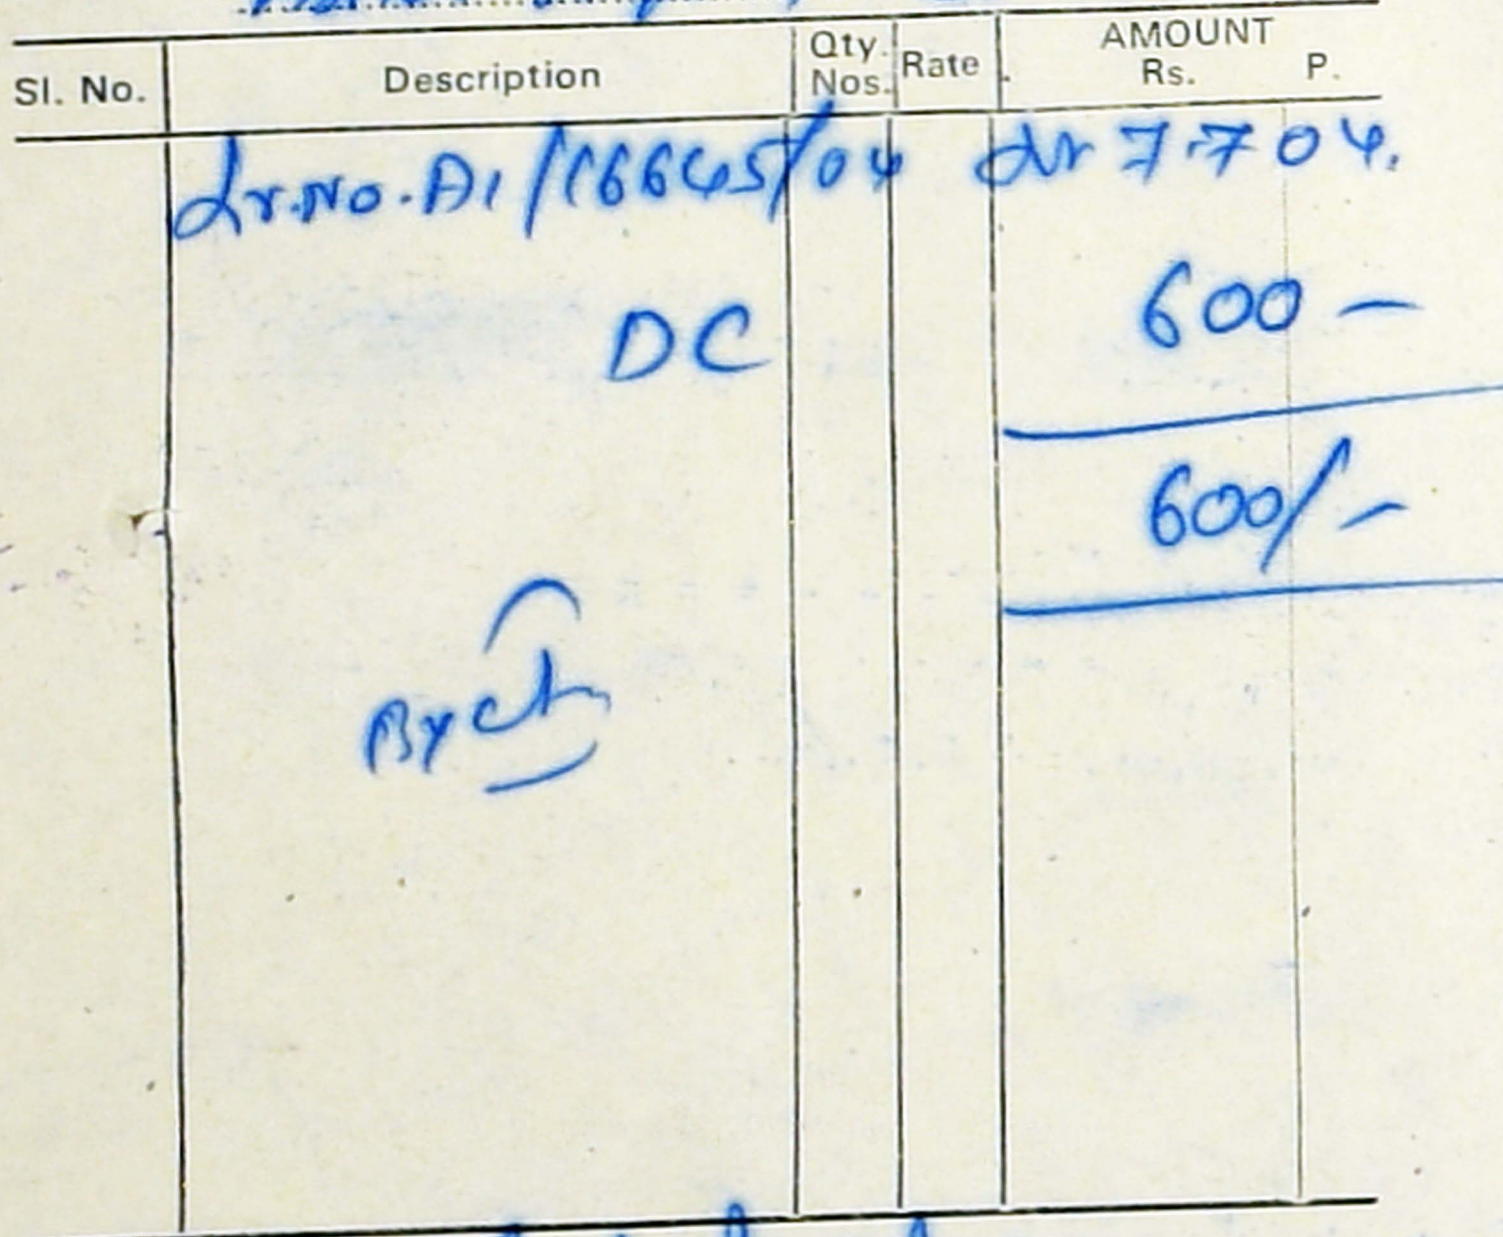 Sl. No. Description Qty. Nos. Rate AMOUNT Rs. P.
Lr.No.A1/16645/04 dt 7.7.04.
DC 600 —
600/-
By ch